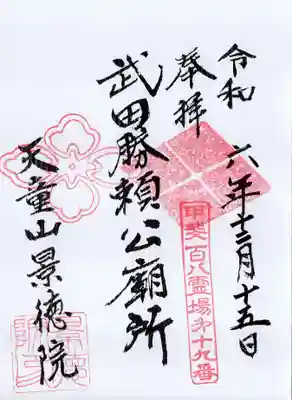 令和六年十二月十五日
奉拝
甲斐百八霊場㐧十九番
武田勝頼公廟所
天童山景徳院